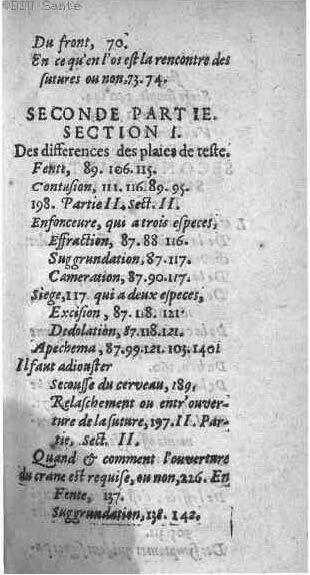 ©BIU Santé
Du front, 70.
En ce qu'en l'os est la rencontre des
sutures ou non, 73. 74.
SECONDE PARTIE.
SECTION I.
Des differences des plaies de teste.
Fente, 89. 106. 115.
Contusion, 111. 116. 89. 95.
198. Partie II. Sect. II.
Enfonceure, qui a trois especes,
Effraction, 87. 88 116.
Suggrundation, 87. 117.
Cameration, 87. 90. 117.
Siege, 117 qui a deux especes,
Excision, 87. 118. 121
Dedolation, 87. 118. 121.
Apechema, 87. 99. 121. 103. 140
Il faut adiouster
Secousse du cerveau, 189.
Relaschement ou entr'ouver-
ture de la suture, 197. II. Par-
tie, Sect. II.
Quand & comment l'ouverture
du crane est requise, ou non, 226. En
Fente, 137.
Suggrundation, 138. 142.